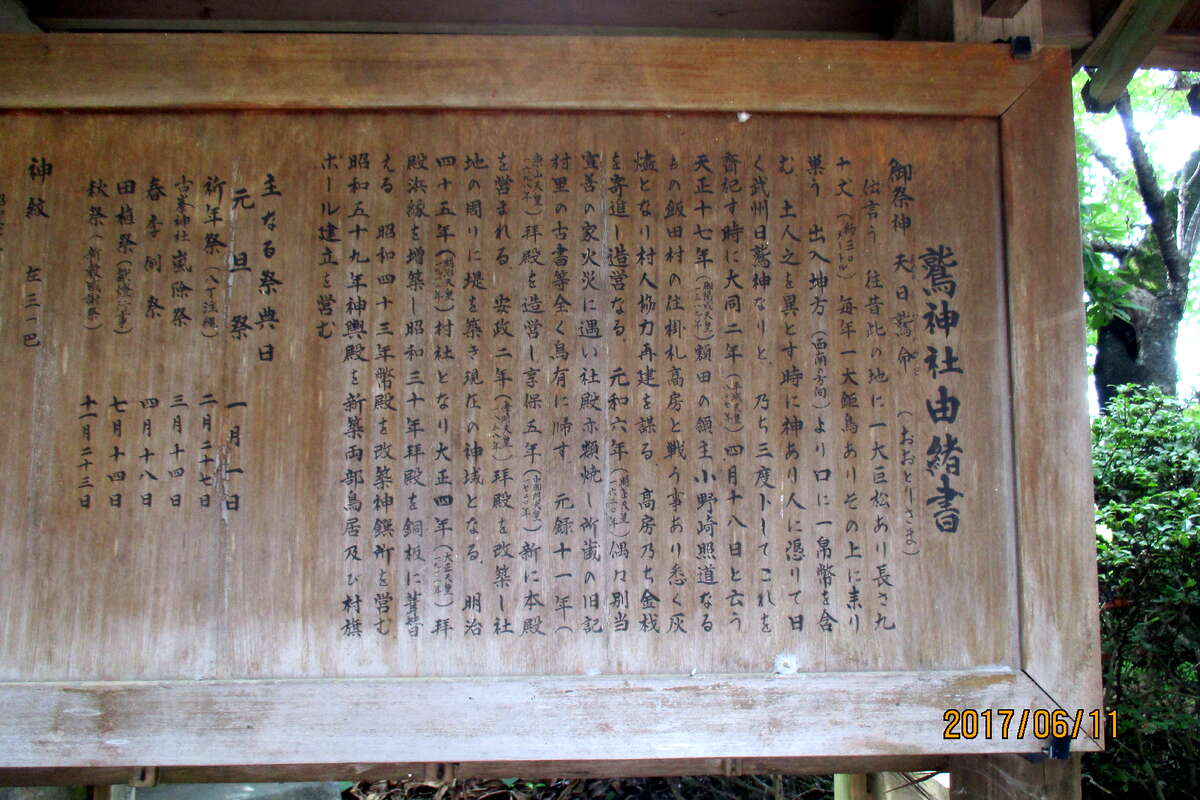 鷲神社由緒書
御祭神 天日鷲命 (おおとりさま)
伝言う 往昔此の地に一大巨松あり長さ九
十丈 毎年一大鉅鳥ありその上に来り
巣う 出入坤方(西南の方向)より口に一帛幣を含
む 土人之を異とす時に神あり人に憑りて曰
く武州日鷲神なりと 乃ち三度トしてこれを
斎祀す時に大同二年(平城天皇)四月十八日と云う
天正十七年 額田の領主小野崎照道なる
もの飯田村の住掛札高房と戦う事あり悉く灰
燼となり村人協力再建を謀る 高房乃ち金桟
を寄進し造営なる 元和六年 偶々別当
宣善の家火災に遇い社殿亦類焼し所蔵の旧記
村里の古書等全く烏有に帰す 元録十一年(
東山天皇)拝殿を造営し享保五年(中御門天皇)新に本殿
を営まれる 安政二年(孝明天皇)拝殿を改築し社
地の周りに堤を築き現在の神域となる 明治
四十五年(明治天皇)村社となり大正四年(大正天皇)拝
殿浜縁を増築し昭和三十年拝殿を銅板に葺替
える 昭和四十三年幣殿を改築神饌所を営む
昭和五十九年神輿殿を新築両部鳥居及び村旗
ポール建立を営む
主なる祭典日
元旦祭 一月一日
祈年祭(八丁注縄) 二月二十七日
古峯神社嵐除祭 三月十四日
春季例祭 四月十八日
田植祭 七月十四日
秋祭(新穀感謝祭) 十一月二十三日
神紋 左三つ巴
2017/06/11